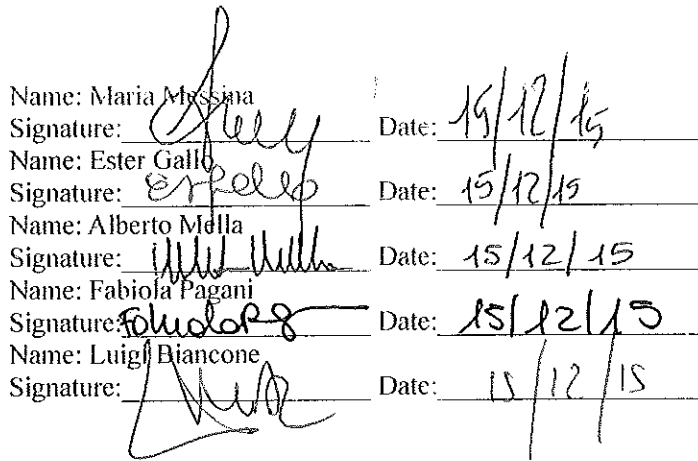 Name: Maria Messina
Signature: Date: 15/12/15
Name: Ester Gallo
Signature: Date: 15/12/15
Name: Alberto Mella
Signature: Date: 15/12/15
Name: Fabiola Pagani
Signature: Date: 15/12/15
Name: Luigi Biancone
Signature: Date: 15/12/15